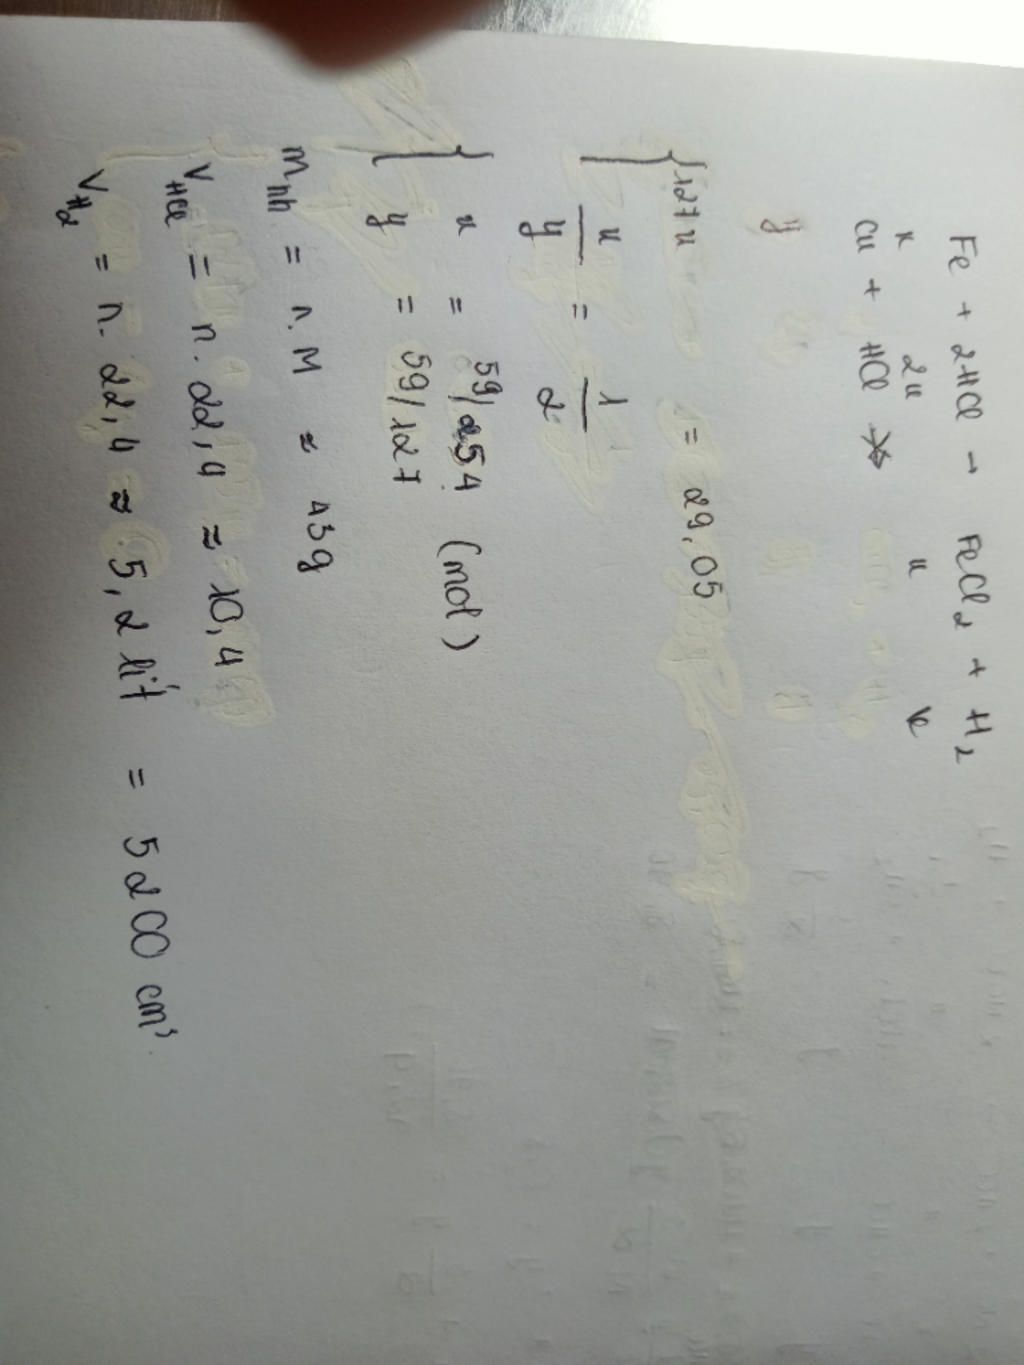 Fe + 2HCl → FeCl₂ + H₂
x 2x x x
Cu + HCl ↛
y
127x = 29,05
x/y = 1/2
x = 59/254 (mol)
y = 59/127
mhh = n.M ≈ 43g
VHCl = n. 22,4 ≈ 10,4
VH₂ = n. 22,4 ≈ 5,2 lít = 5200 cm³